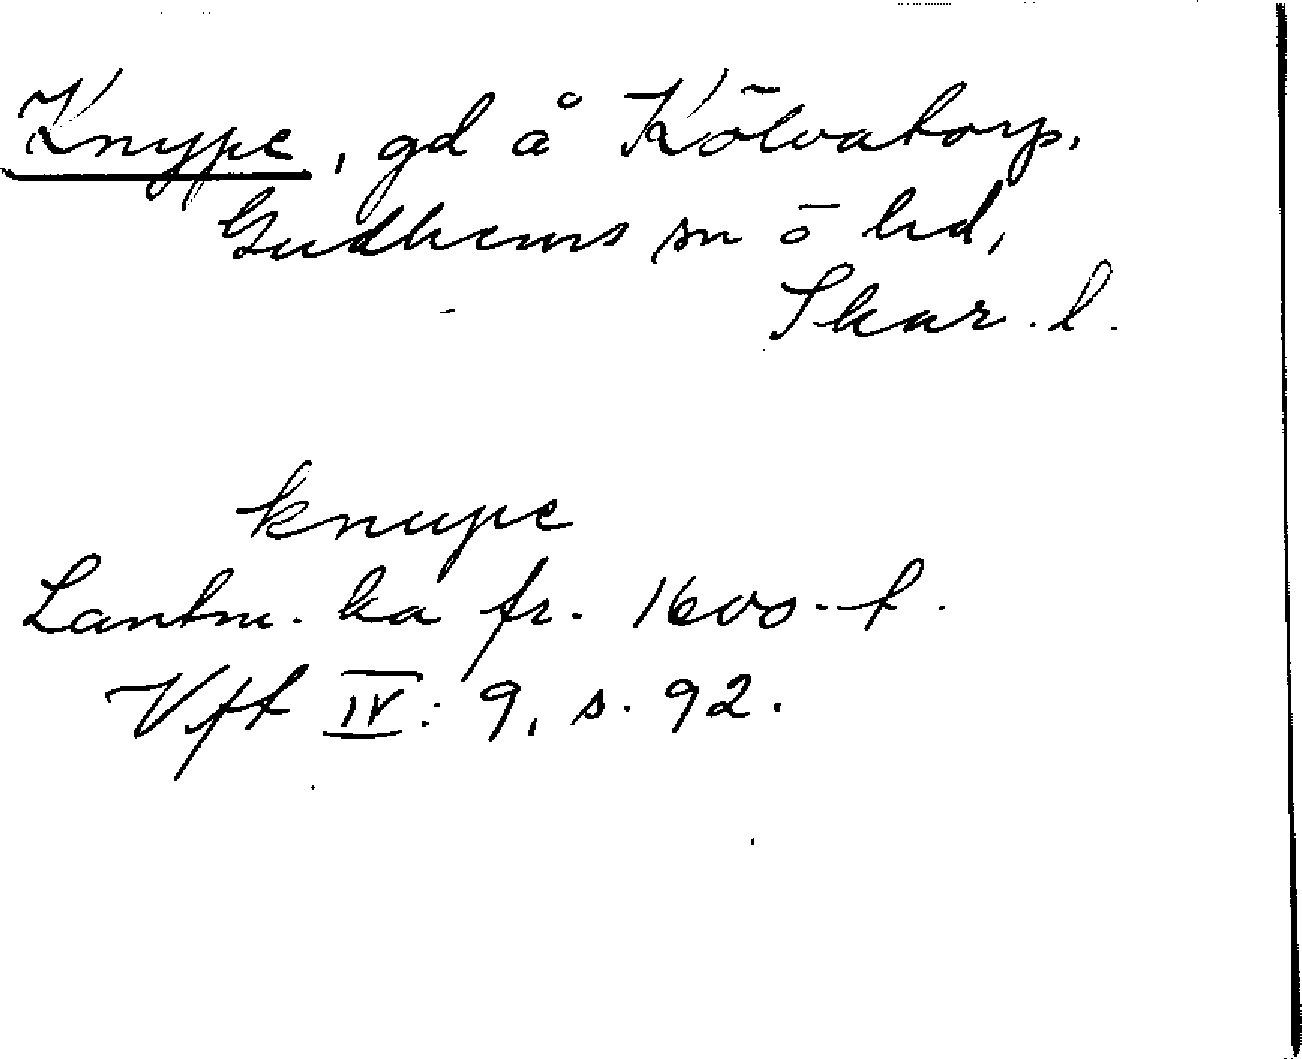 Knype, gd å Kölvatorp,
Gudhems sn ō hd,
Skar. l.
knupe
Lantm. ka fr. 1600-t.
Vft IV: 9, s. 92.